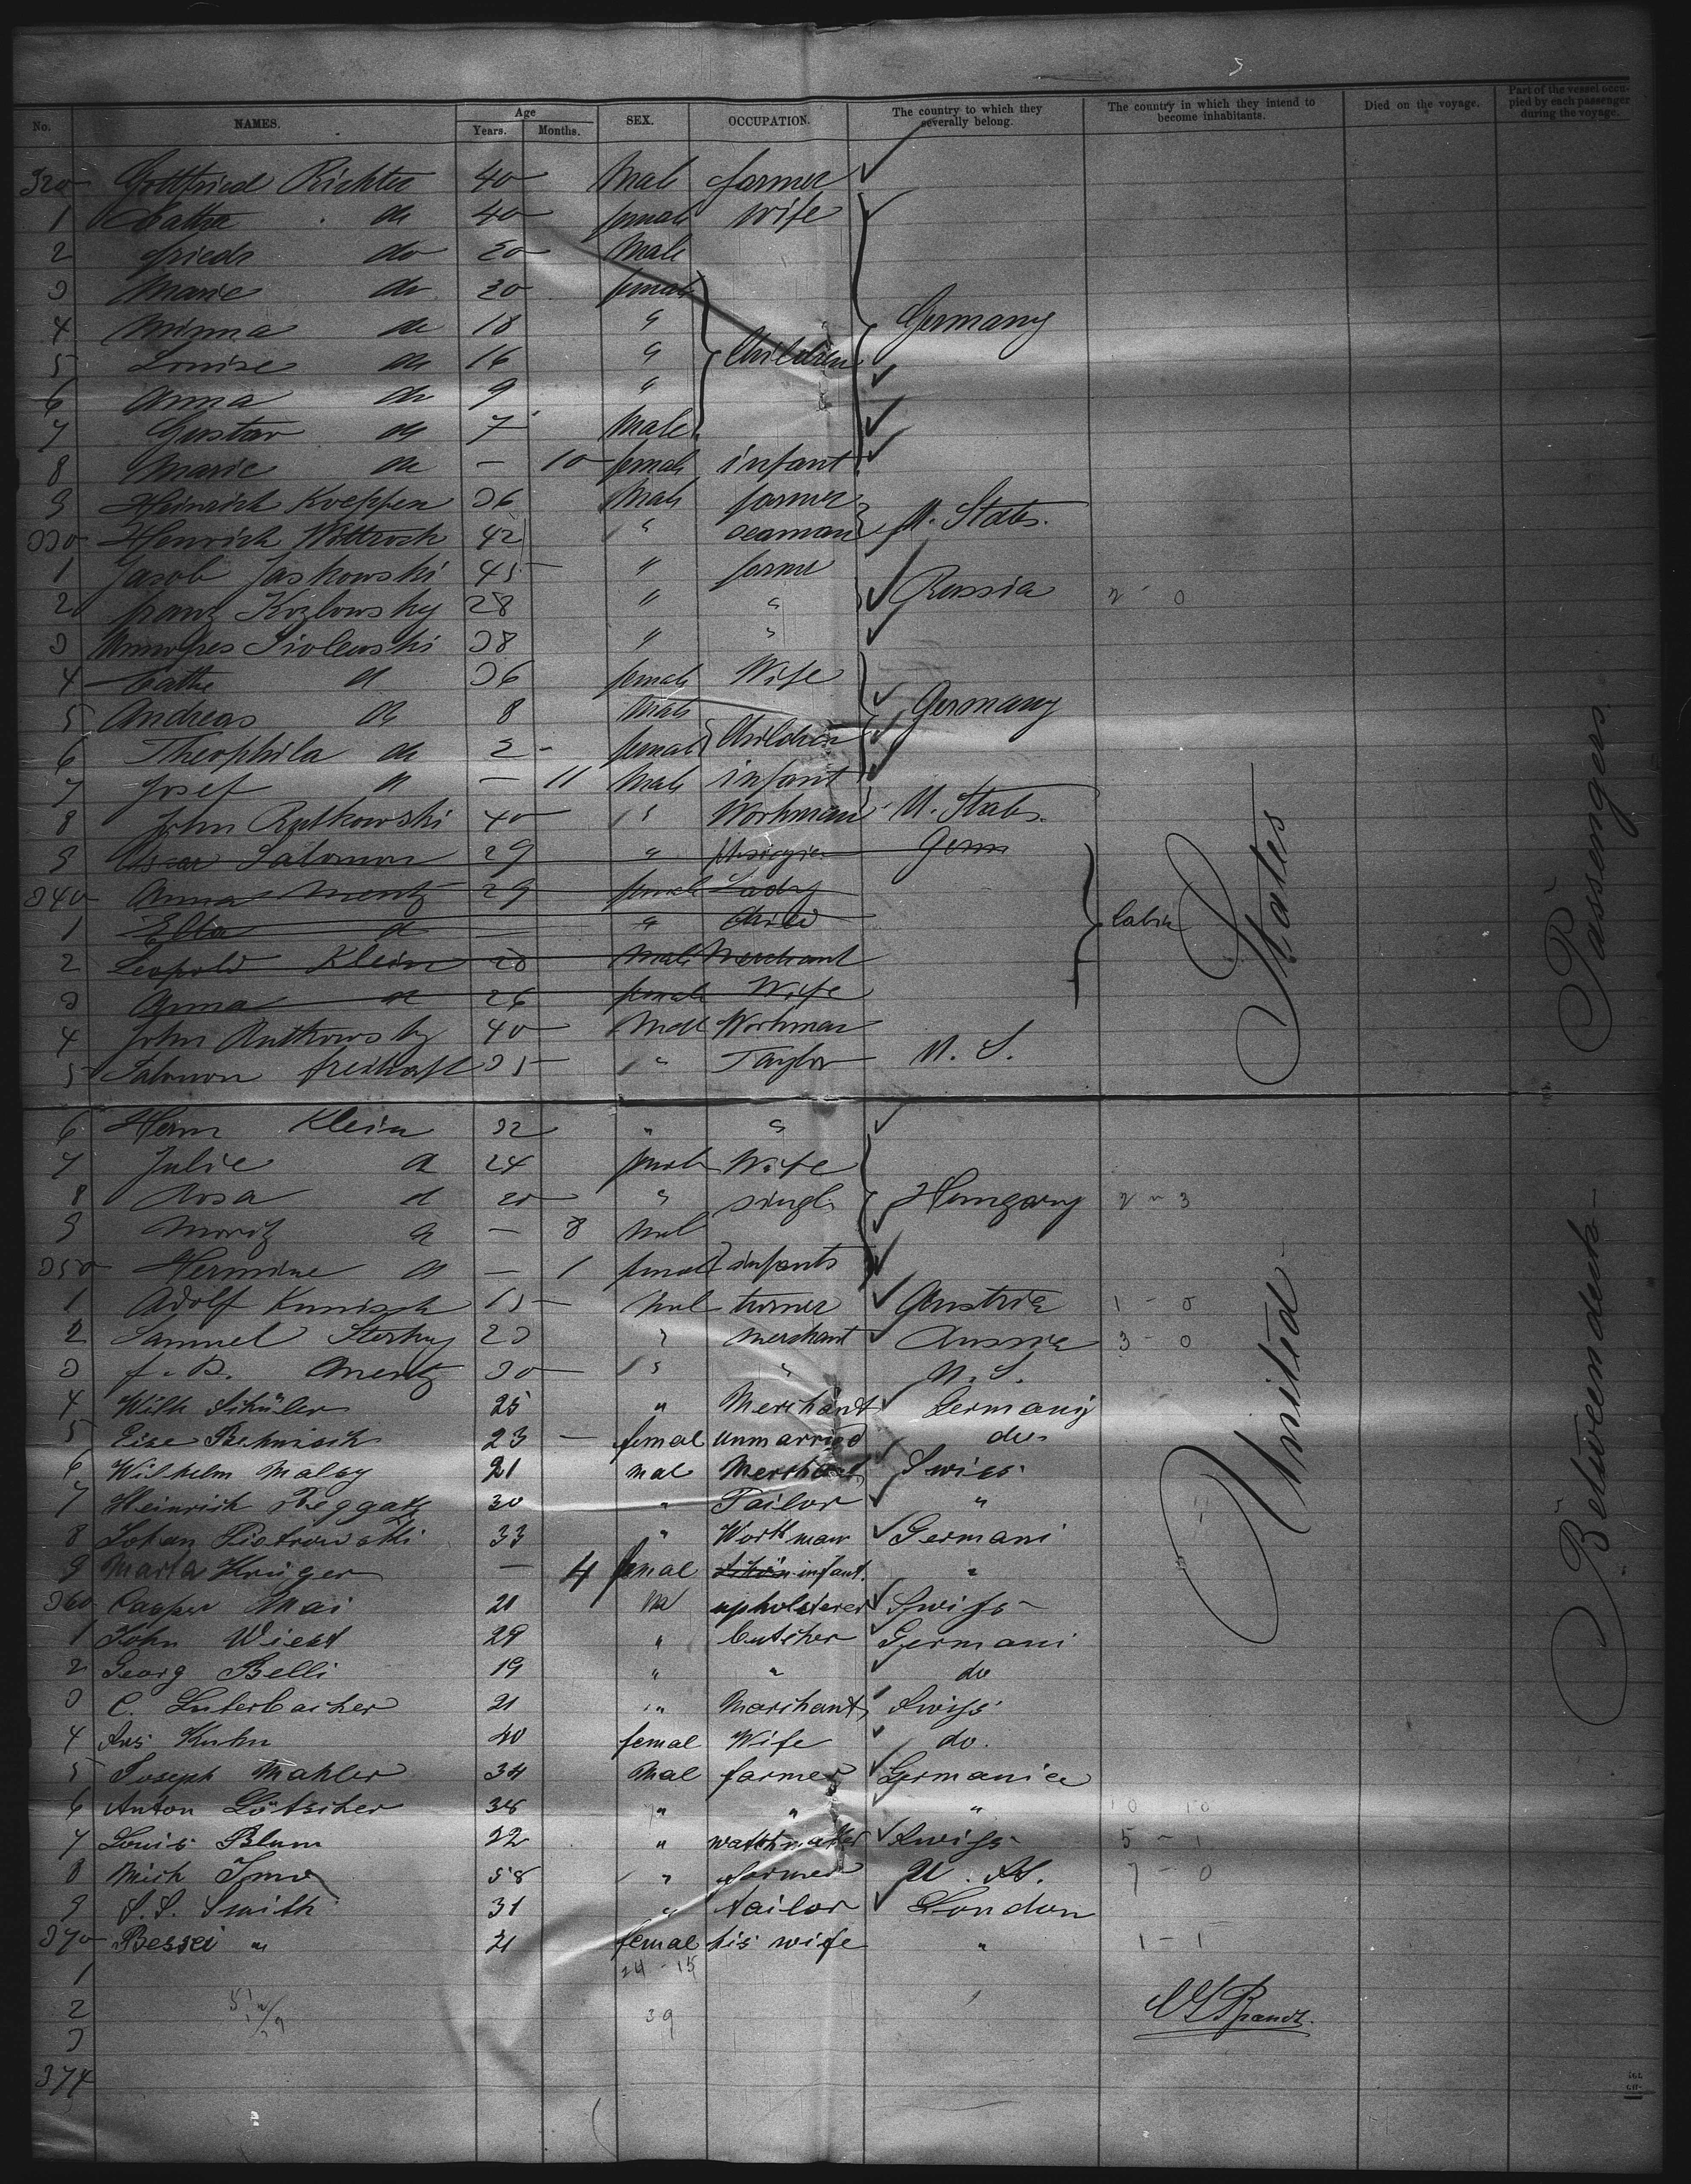 No. NAMES. Age Years. Months. SEX. OCCUPATION. The country to which they severally belong. The country in which they intend to become inhabitants. Died on the voyage. Part of the vessel occupied by each passenger during the voyage.
320 Gottfried Richter 40 Male farmer
1 Cathe do 40 female wife
2 Friedr do 20 Male
3 Marie do 20 female
4 Minna do 18 " Germany
5 Louise do 16 " Children
6 Anna do 9 "
7 Gustav do 7 Male
8 Marie do — 10 female infant
9 Heinrich Koeppen 36 Male farmer
330 Henrich Wittrock 42 " seaman U. States.
1 Jacob Jaskowski 45 " farmer
2 Franz Kozlowsky 28 " " Russia 2 - 0
3 38 "
4 Cathe d 36 female Wife
5 Andreas do 8 Male Germany
6 Theophila do 2 - female Children
7 Josef d — 11 Male infant
8 John Rutkowski 40 " Workman U. States.
9 Salomon 29 " Germ
340 Anna Mentz 29 female Lady
1 Ella d — " Child Cabin
2 Leopold Klein 28 Male Merchant
3 Anna d 26 female Wife
4 John Ruthowsky 40 Male Workman
5 Salomon 35 " Taylor U. S.
6 Herm Klein 32 " "
7 Julie d 24 female Wife
8 Rosa d 20 " single Hungary 2 " 3
9 Moritz d — 8 mal
350 Hermine d — 1 female infants
1 Adolf Kunisch 15 mal turner Austria 1 - 0
2 Samuel 23 " merchant 3 - 0
3 Mentz 30 " " U. S.
4 Wilh Schüler 25 " Merchant Germany
5 Elise Behnisch 23 — femal unmarried do
6 Wilhelm Malsy 21 mal Merchant Swiss
7 Heinrich 30 " Tailor "
8 Johan Piotrowski 33 " Workman Germani
9 Marta Krüger — 4 femal infant. "
360 Casper Mai 21 M upholsterer Swiss
1 John Wiest 29 " butcher Germani
2 Georg Belli 19 " " do
3 C. Luterbacher 21 " Marchant Swiss
4 Kuhn 40 femal Wife do.
5 Joseph Mahler 34 Mal farmer Germania
6 Anton Lötscher 36 " " " 10 10
7 Louis Blum 22 " watchmaker Swiss 5 - 1
8 Mich 58 " farmer U. St. 7 - 0
9 S. S. Smith 31 " tailor London
370 Bessei " 21 femal his wife " 1 - 1
1 24 - 15
2 39
3
374
United States
Between decks Passengers
Brandt.